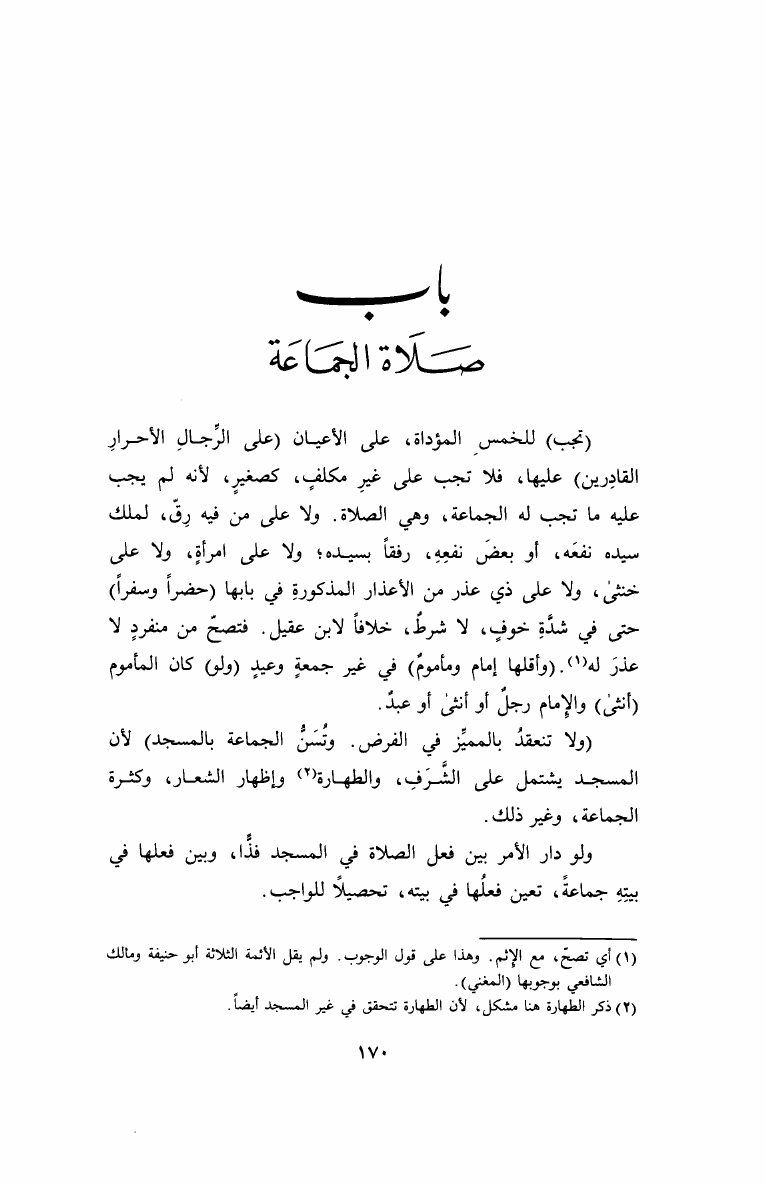 باب
صَلَاة الجَمَاعَة
(تجب) للخمسِ المؤداة، على الأعيان (على الرِّجالِ الأحرارِ
القادِرين) عليها، فلا تجب على غيرِ مكلفٍ، كصغيرٍ، لأنه لم يجب
عليه ما تجب له الجماعة، وهي الصلاة. ولا على من فيه رِقّ، لملك
سيده نفعَه، أو بعضَ نفعِهِ، رفقاً بسيده؛ ولا على امرأةٍ، ولا على
خنثىٰ، ولا على ذي عذر من الأعذار المذكورةِ في بابها (حضراً وسفراً)
حتى في شدَّةِ خوفٍ، لا شرطٌ، خلافاً لابن عقيل. فتصحّ من منفردٍ لا
عذرَ له(١). (وأقلها إمام ومأمومٌ) في غير جمعةٍ وعيدٍ (ولو) كان المأموم
(أنثىٰ) والإمام رجلٌ أو أنثىٰ أو عبدٌ.
(ولا تنعقدُ بالمميِّز في الفرض. وتُسَنُّ الجماعة بالمسجد) لأن
المسجد يشتمل على الشَّرَفِ، والطهارة(٢) وإظهار الشعار، وكثرة
الجماعة، وغير ذلك.
ولو دار الأمر بين فعل الصلاة في المسجد فذًّا، وبين فعلها في
بيتِهِ جماعةً، تعين فعلُها في بيته، تحصيلًا للواجب.
(١) أي تصحّ، مع الإثم. وهذا على قول الوجوب. ولم يقل الأئمة الثلاثة أبو حنيفة ومالك
الشافعي بوجوبها (المغني).
(٢) ذكر الطهارة هنا مشكل، لأن الطهارة تتحقق في غير المسجد أيضاً.
١٧٠